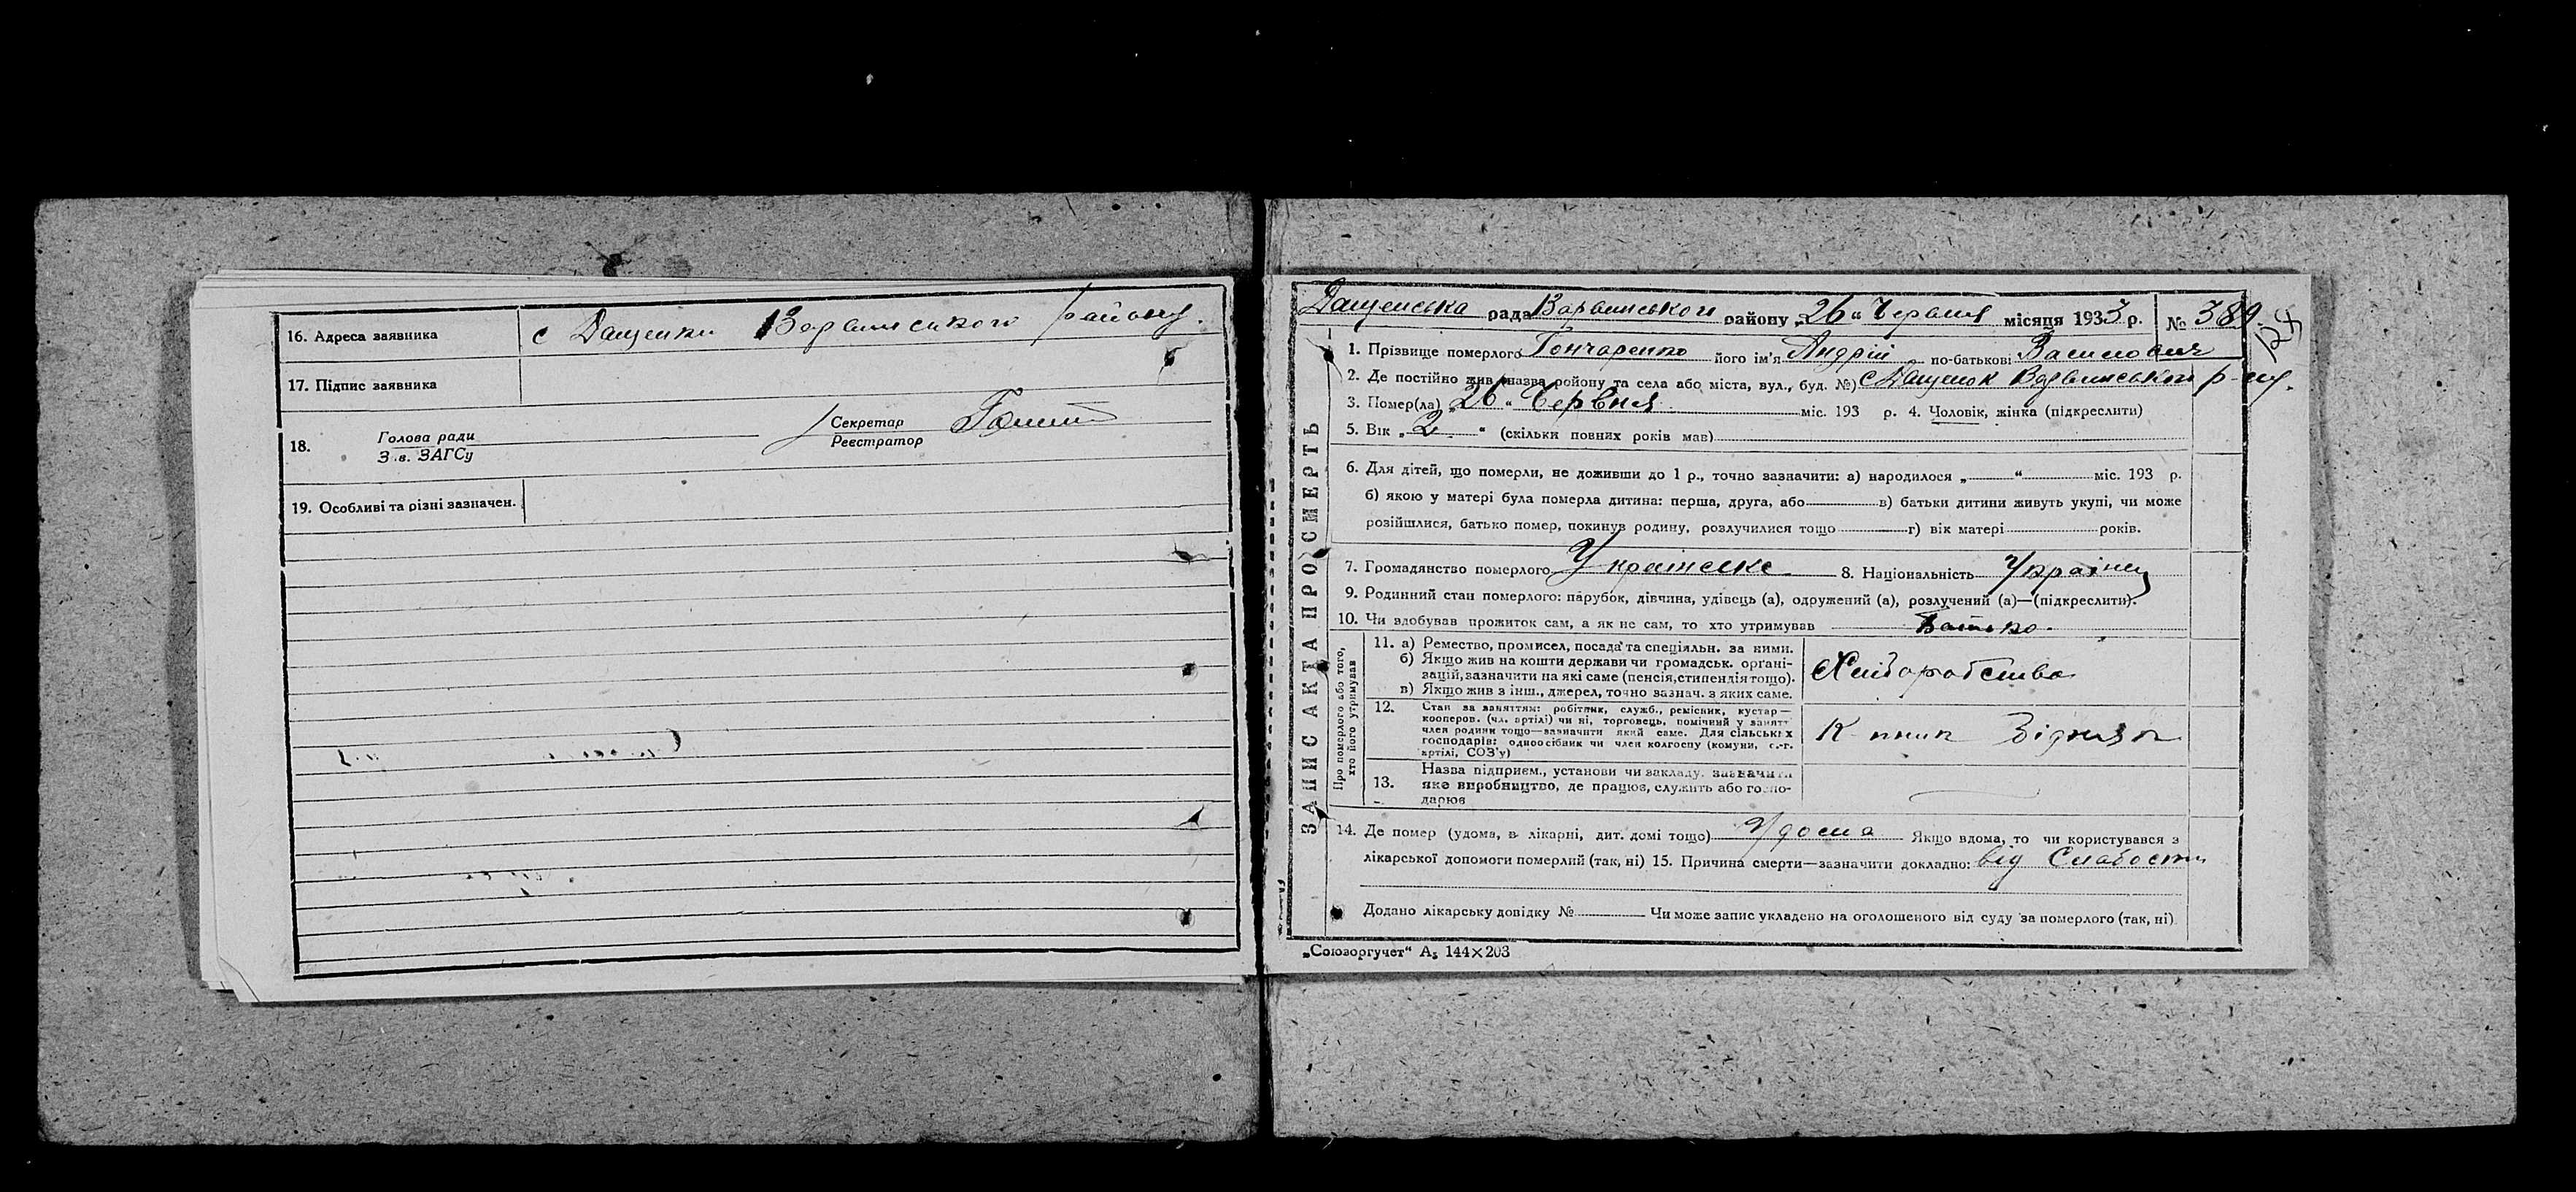 16. Адреса заявника с Дащенки Варвинського району.
17. Підпис заявника
18. Голова ради
З.в. ЗАГСу
Секретар
Реєстратор
19. Особливі та різні зазначен.
ЗАПИС АКТА ПРО СМЕРТЬ
Дащенська рада Варвинського району „26“ Червня місяця 1933 р. № 389.
124
1. Прізвище померлого Гончаренко його ім'я Андрій по-батькові Василович
2. Де постійно жив (назва району та села або міста, вул., буд. №) с Дащенок Варвинського р-ну.
3. Помер(ла) „26“ Червня міс. 193 р. 4. Чоловік, жінка (підкреслити)
5. Вік „2“ (скільки повних років мав)
6. Для дітей, що померли, не доживши до 1 р., точно зазначити: а) народилося „ “ міс. 193 р.
б) якою у матері була померла дитина: перша, друга, або в) батьки дитини живуть укупі, чи може
розійшлися, батько помер, покинув родину, розлучилися тощо г) вік матері років.
7. Громадянство померлого Українське 8. Національність Українец
9. Родинний стан померлого: парубок, дівчина, удівець (а), одружений (а), розлучений (а)—(підкреслити).
10. Чи здобував прожиток сам, а як не сам, то хто утримував Батько.
Про померлого або того, хто його утримував
11. а) Ремество, промисел, посада та спеціяльн. за ними.
б) Якщо жив на кошти держави чи громадськ. органі-
зацій, зазначити на які саме (пенсія, стипендія тощо).
в) Якщо жив з інш., джерел, точно зазнач. з яких саме.
Хліборобство
12. Стан за заняттям: робітник, служб., ремісник, кустар—
кооперов. (чл. артілі) чи ні, торговець, помічний у занятт
член родини тощо—зазначити який саме. Для сільських
господарів: одноосібник чи член колгоспу (комуни, с.-г.
артілі, СОЗ'у)
К-пник Бідняк
13. Назва підприєм., установи чи закладу, зазначити
яке виробництво, де працює, служить або госпо-
дарює
14. Де помер (удома, в лікарні, дит. домі тощо) Удома Якщо вдома, то чи користувався з
лікарської допомоги померлий (так, ні) 15. Причина смерти—зазначити докладно: від Слабости
Додано лікарську довідку № Чи може запис укладено на оголошеного від суду за померлого (так, ні)
„Союзоргучет“ А₅ 144×203